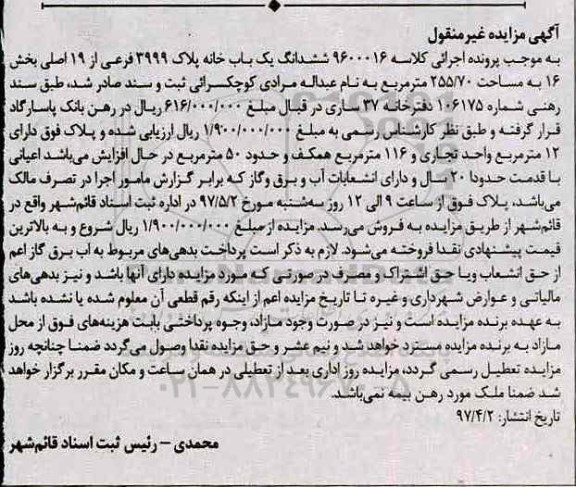 آگهی مزایده غیرمنقول
به موجب پرونده اجرائی کلاسه ۹۶۰۰۰۱۶ ششدانگ یک باب خانه پلاک ۳۹۹۹ فرعی از ۱۹ اصلی بخش
۱۶ به مساحت ۲۵۵/۷۰ مترمربع به نام عبداله مرادی کوچکسرائی ثبت و سند صادر شد، طبق سند
رهنی شماره ۱۰۶۱۷۵ دفترخانه ۳۷ ساری در قبال مبلغ ۶۱۶/۰۰۰/۰۰۰ ریال در رهن بانک پاسارگاد
قرار گرفته و طبق نظر کارشناس رسمی به مبلغ ۱/۹۰۰/۰۰۰/۰۰۰ ریال ارزیابی شده و پلاک فوق دارای
۱۲ مترمربع واحد تجاری و ۱۱۶ مترمربع همکف و حدود ۵۰ مترمربع در حال افزایش می‌باشد اعیانی
با قدمت حدودا ۲۰ سال و دارای انشعابات آب و برق وگاز که برابر گزارش مامور اجرا در تصرف مالک
می‌باشد، پلاک فوق از ساعت ۹ الی ۱۲ روز سه‌شنبه مورخ ۹۷/۵/۲ در اداره ثبت اسناد قائم‌شهر واقع در
قائم‌شهر از طریق مزایده به فروش می‌رسد. مزایده از مبلغ ۱/۹۰۰/۰۰۰/۰۰۰ ریال شروع و به بالاترین
قیمت پیشنهادی نقدا فروخته می‌شود. لازم به ذکر است پرداخت بدهی‌های مربوط به آب برق گاز اعم
از حق انشعاب ویا حق اشتراک و مصرف در صورتی که مورد مزایده دارای آنها باشد و نیز بدهی‌های
مالیاتی و عوارض شهرداری و غیره تا تاریخ مزایده اعم از اینکه رقم قطعی آن معلوم شده یا نشده باشد
به عهده برنده مزایده است و نیز در صورت وجود مازاد، وجوه پرداختی بابت هزینه‌های فوق از محل
مازاد به برنده مزایده مسترد خواهد شد و نیم عشر و حق مزایده نقدا وصول می‌گردد ضمنا چنانچه روز
مزایده تعطیل رسمی گردد، مزایده روز اداری بعد از تعطیلی در همان ساعت و مکان مقرر برگزار خواهد
شد ضمنا ملک مورد رهن بیمه نمی‌باشد.
تاریخ انتشار: ۹۷/۴/۲
محمدی – رئیس ثبت اسناد قائم‌شهر